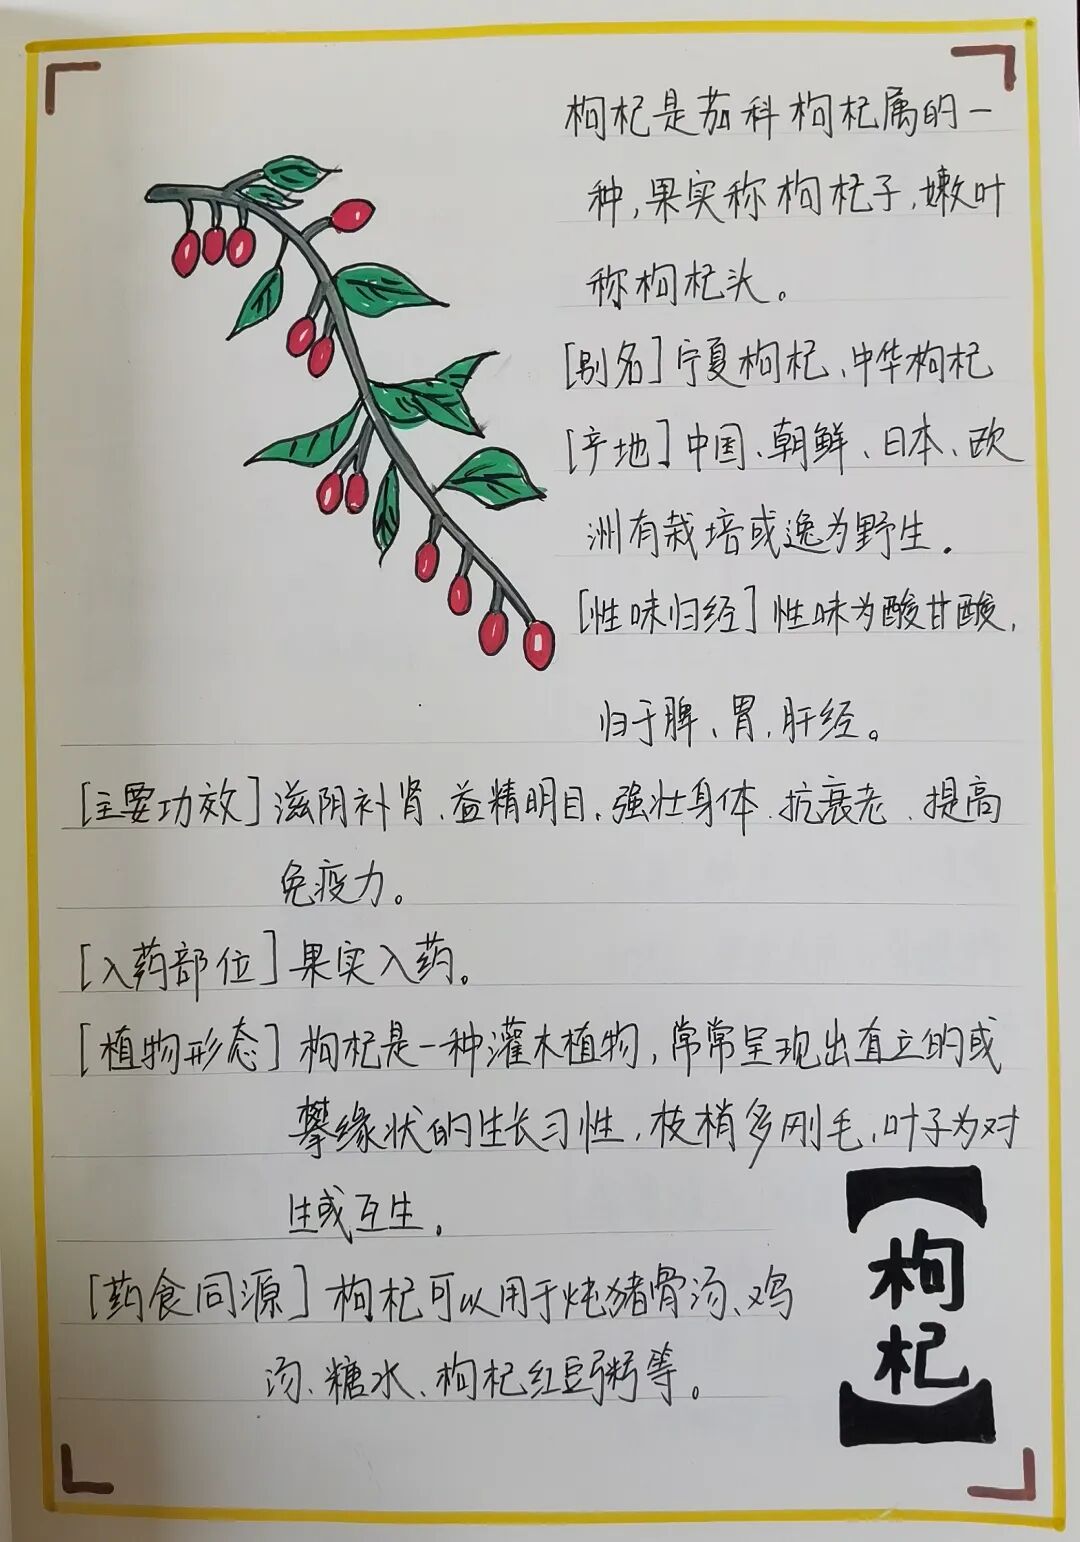 枸杞是茄科枸杞属的一
种,果实称枸杞子,嫩叶
称枸杞头。
[别名]宁夏枸杞、中华枸杞
[产地]中国、朝鲜、日本、欧
洲有栽培或逸为野生.
[性味归经]性味为酸甘酸,
归于脾、胃、肝经。
[主要功效]滋阴补肾、益精明目、强壮身体、抗衰老、提高
免疫力。
[入药部位]果实入药。
[植物形态]枸杞是一种灌木植物,常常呈现出直立的或
攀缘状的生长习性,枝梢多刚毛,叶子为对
生或互生.
[药食同源]枸杞可以用于炖猪骨汤、鸡
汤、糖水、枸杞红豆粥等。
【枸杞】